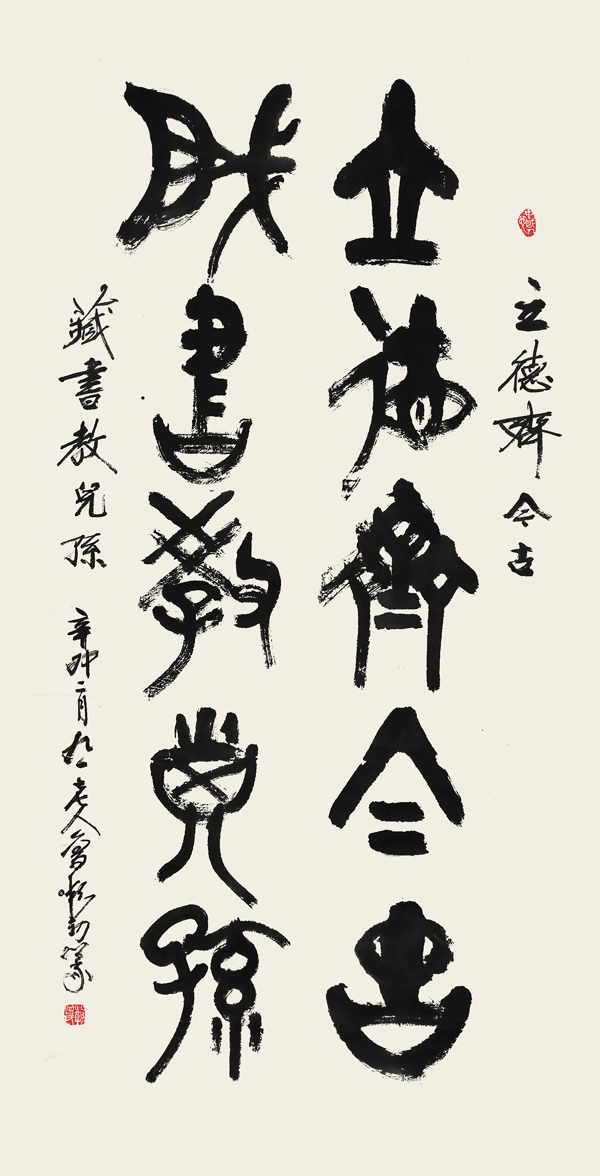 立德齊今古
立德齊今古
藏書教兒孫
藏書教兒孫 辛卯二月 老人曾